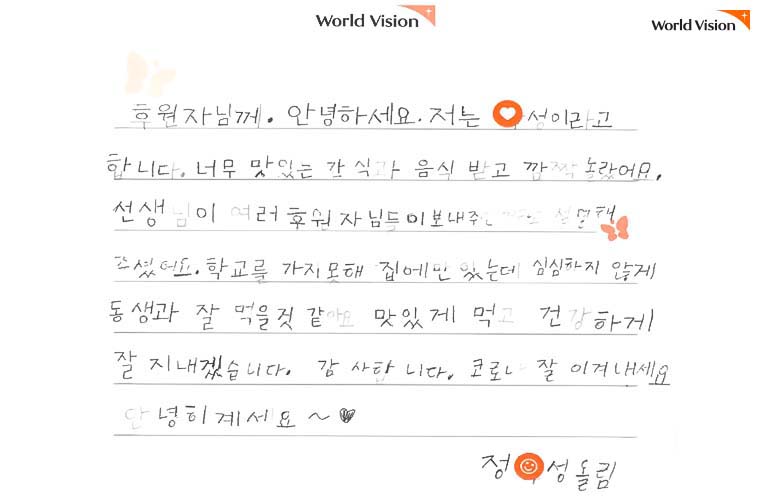 World Vision
World Vision
후원자님께. 안녕하세요. 저는 성이라고
합니다. 너무 맛있는 간식과 음식 받고 깜짝 놀랐어요.
선생님이 여러 후원자님들이 보내주 설명해
주셨어요. 학교를 가지못해 집에만 있는데 심심하지 않게
동생과 잘 먹을것 같아요 맛있게 먹고 건강하게
잘 지내겠습니다. 감사합니다. 코로나 잘 이겨내세요
안녕히계세요 ~ ♥
정 성올림